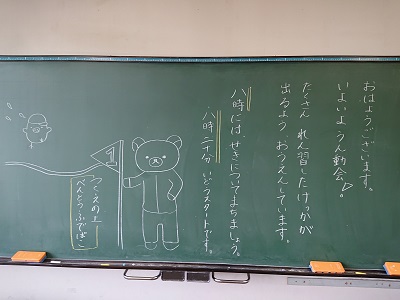 おはようございます。
いよいよ うん動会
たくさん れん習したけっかが
出るよう おうえんしています。
八時には、せきについてまちましょう。
・八時二十分 いどうスタートです。
1
つくえの上
べんとう ふでばこ